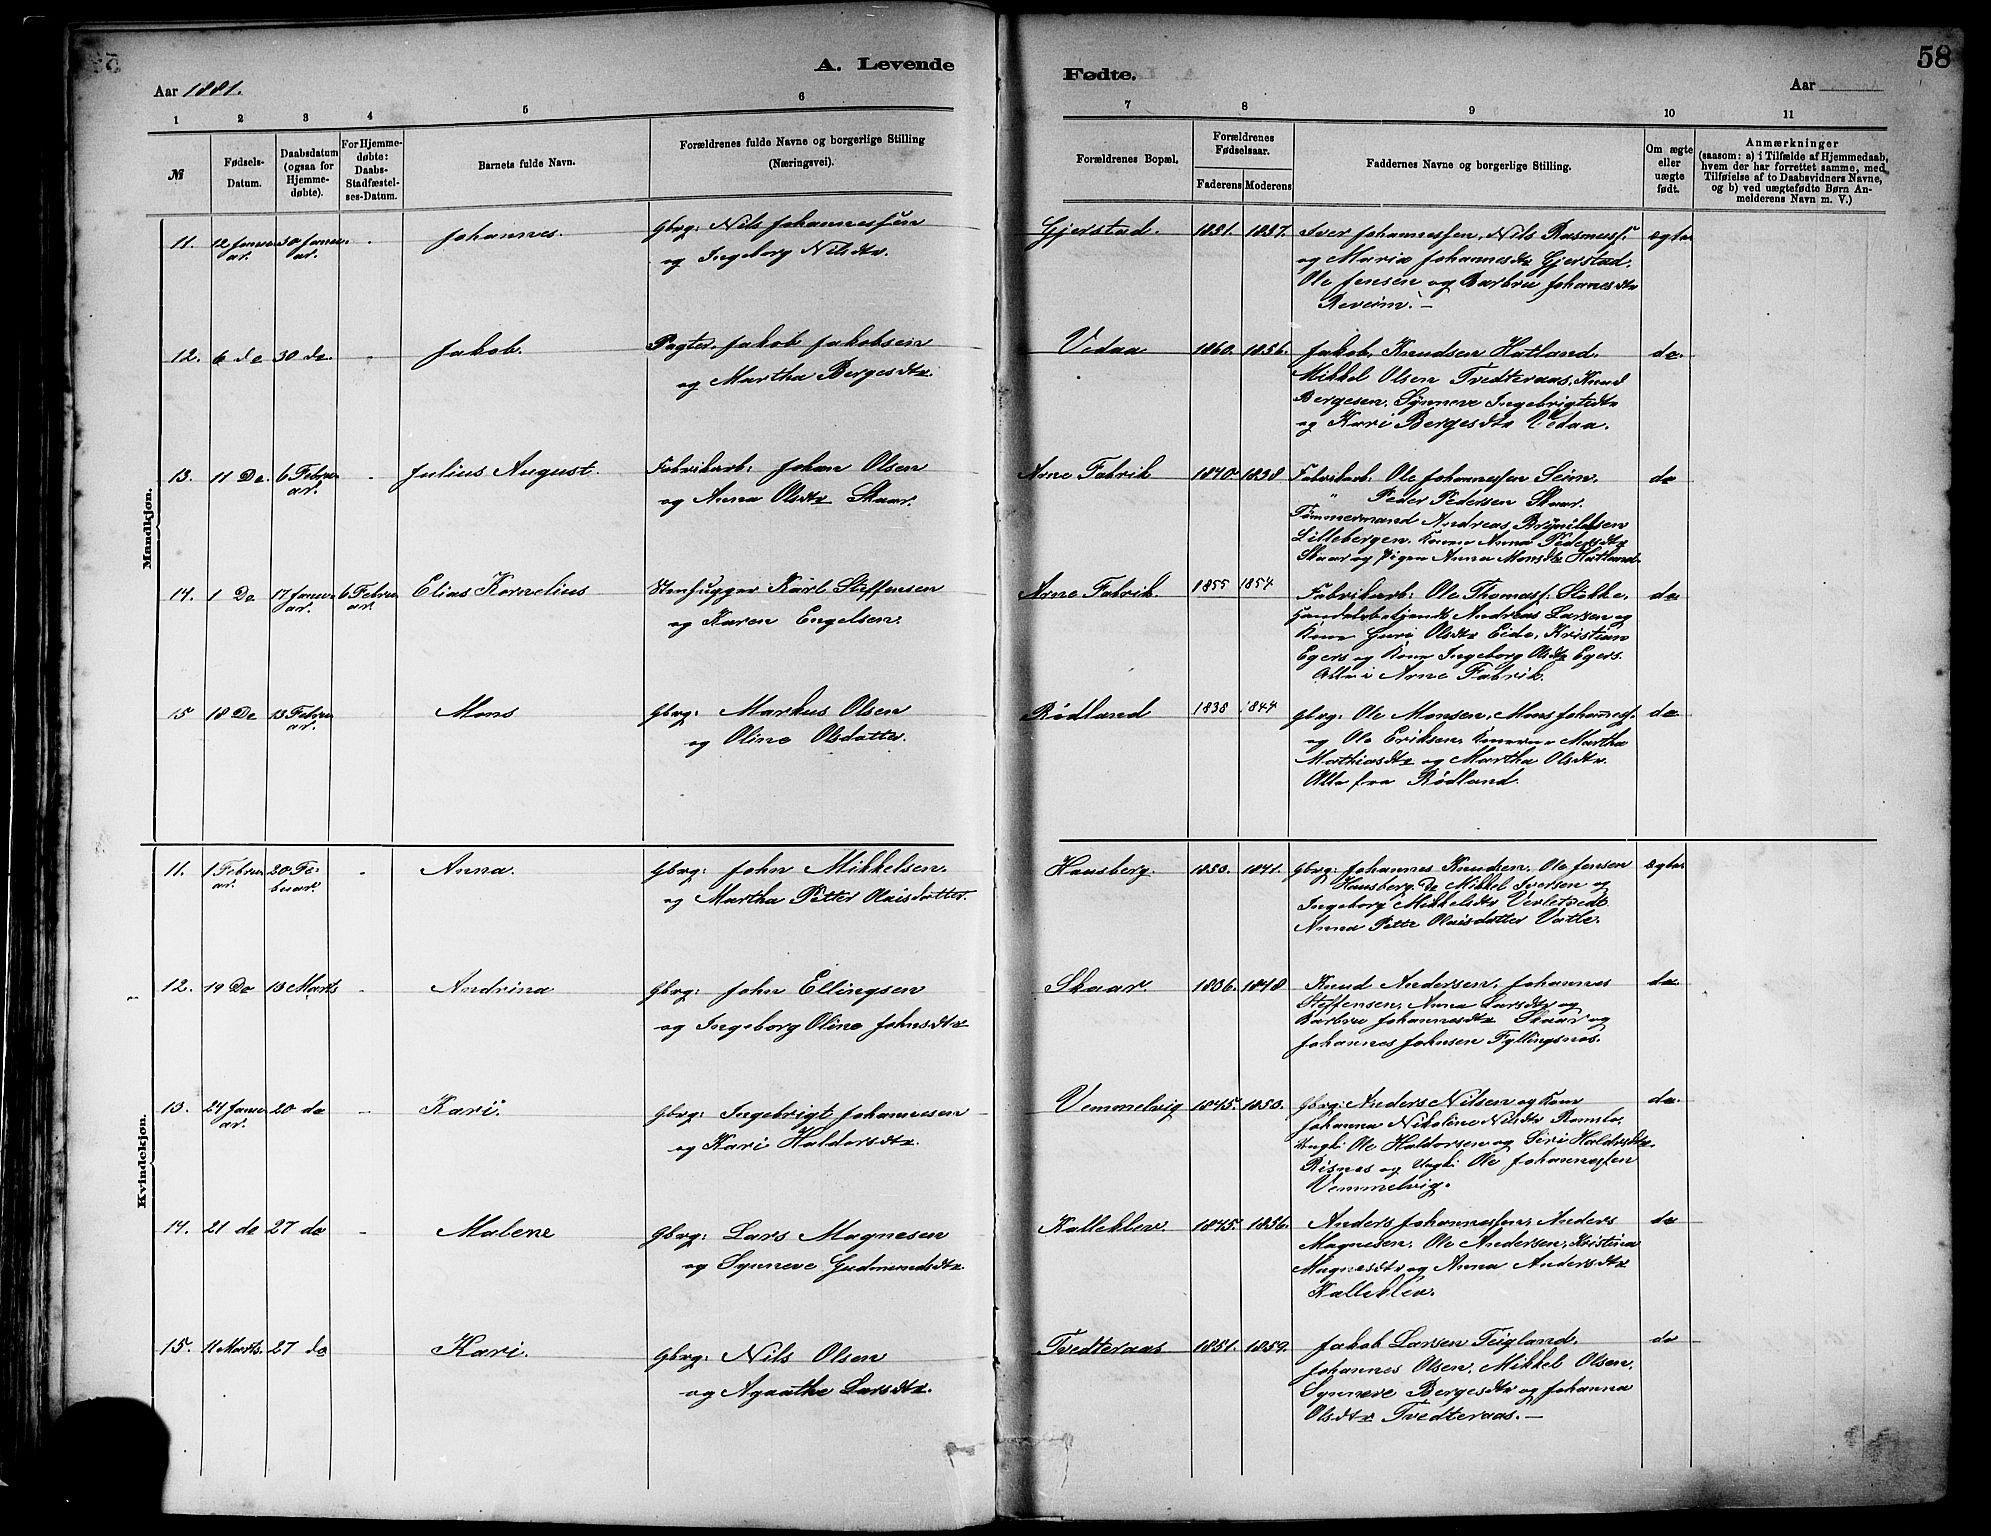 A. Levende
Fødte.
58
Aar 1881.
Aar
1 2 3 4 5 6 7 8 9 10 11
№
Fødsels-
Datum.
Daabsdatum
(ogsaa for
Hjemme-
døbte).
For Hjemme-
døbte:
Daabs-
Stadfæstel-
ses-Datum.
Barnets fulde Navn.
Forældrenes fulde Navne og borgerlige Stilling
(Næringsvei).
Forældrenes Bopæl.
Forældrenes
Fødselsaar.
Faderens Moderens
Faddernes Navne og borgerlige Stilling.
Om ægte
eller
uægte
født.
Anmærkninger
(saasom: a) i Tilfælde af Hjemmedaab,
hvem der har forrettet samme, med
Tilføielse af to Daabsvidners Navne,
og b) ved uægtefødte Børn An-
melderens Navn m. V.)
Mandkjøn.
11. 12 Janu-
ar. 30 Janu-
ar. - Johannes. Gbrg: Nils Johannessen
og Ingeborg Nilsdtr.
Gjerstad. 1837. Iver Johannessen, Nils Rasmuss.
og Maria Johannesdtr Gjerstad.
Ole Jensen og Barbru Johannesdtr
Reveim. —
ægte
12. 6 do 30 do. - Jakob. Pagter. Jakob Jakobsen
og Martha Bergesdtr.
Vedaa 1860. 1856. Jakob Knudsen Hatland.
Mikkel Olsen Tvedteraas, Knud
Bergesen, Synneve Ingebrigtsdtr
og Kari Bergesdtr Vedaa.
do
13. 11 Do. 6 Febru-
ar. - Julius August. Fabrikarb: Johan Olsen
og Anna Olsdtr Skaar.
Arne Fabrik 1840. 1838 Fabrikarb: Ole Johannessen Seim.
" Peder Pedersen Skaar.
Tømmermand Andreas Brynildsen
Lillebergen. Konen Anna Pedersdtr
Skaar og Pigen Anna Monsdtr Hatland
do
14. 1 Do 17 Janu-
ar. 6 Febru-
ar. Elias Kornelius Stenhugger Karl Steffensen
og Karen Engelsen.
Arne Fabrik 1855 1854 Fabrikarb: Ole Thomass. Stokke,
Handelsbetjendt Andreas Larsen og
Kone Guri Olsdtr Eide, Kristian
Egers og Kone Ingeborg Olsdtr Egers.
Alle i Arne Fabrik.
do
15 18 Do 13 Febru-
ar. Mons Gbrg: Markus Olsen
og Oline Olsdatter.
Rødland 1838 1844 Gbrg: Ole Monsen, Mons Johanness.
og Ole Eriksen. Konerne Martha
Mathiasdtr og Martha Olsdtr.
Alle fra Rødland.
do
Kvindekjøn.
11. 1 Febru-
ar. 20 Fe-
bruar. - Anna. Gbrg: John Mikkelsen.
og Martha Petter Olaisdatter.
Hausberg. 1850. 1841. Gbrg: Johannes Knudsen, Ole Jensen
Hausberg. Do Mikkel Iversen og
Ingeborg Mikkelsdtr
Anna Olaisdatter Vatle.
ægte
12. 19 Do 13 Marts - Andrina Gbrg: John Ellingsen
og Ingeborg Oline Johnsdtr
Skaar. 1836. 1848 Knud Andersen, Johannes
Steffensen, Anna Larsdtr og
Barbru Johannesdtr Skaar og
Johannes Johnsen Fyllingsnes.
do
13. 24 Janu-
ar. 20 do - Kari. Gbrg: Ingebrigt Johannesen
og Kari Haldorsdtr.
Vemmelvig 1845. 1850. Gbrg: Anders Nilsen og Kone
Johanna Nikoline Nilsdtr Romslo.
Ungk: Ole Haldorsen og Siri Haldorsdtr.
Risnes og Ungk: Ole Johannessen
Vemmelvig.
do
14. 21 do 27 do - Malene Gbrg: Lars Magnesen
og Synneve Gudmundsdtr.
Kalleklev. 1845. 1836. Anders Johannessen, Anders
Magnesen, Ole Andersen, Kristina
Magnesdtr og Anna Andersdtr
Kalleklev.
do
15. 11 Marts. 27 do Kari. Gbrg: Nils Olsen
og Agaathe Larsdtr.
Tvedteraas 1851. 1859. Jakob Larsen Teigland.
Johannes Olsen, Mikkel Olsen,
Synneve Bergesdtr og Johanna
Olsdtr Tvedteraas. —
do